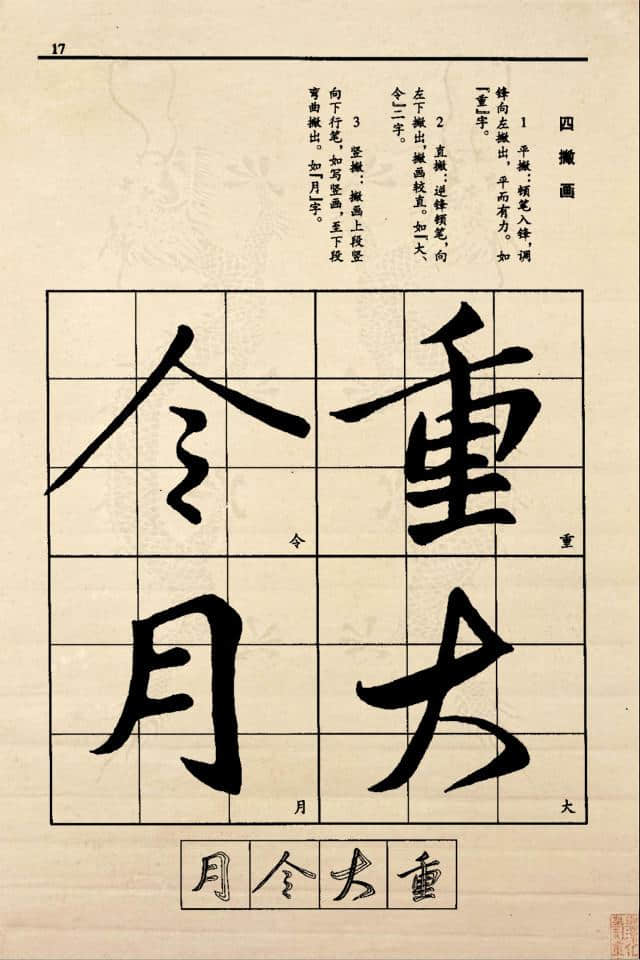 17
四 撇画
1 平撇：顿笔入锋，调
锋向左撇出，平而有力。如
『重』字。
2 直撇：逆锋顿笔，向
左下撇出，撇画较直。如『大、
令』二字。
3 竖撇：撇画上段竖
向下行笔，如写竖画，至下段
弯曲撇出。如『月』字。
重
重
大
大
令
令
月
月
重
大
令
月